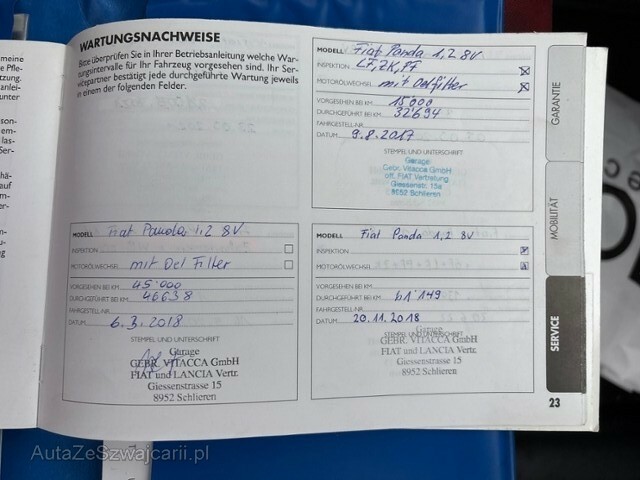 WARTUNGSNACHWEISE
Bitte überprüfen Sie in Ihrer Betriebsanleitung welche War-
tungsintervalle für Ihr Fahrzeug vorgesehen sind. Ihr Ser-
vicepartner bestätigt jede durchgeführte Wartung jeweils
in einem der folgenden Felder.
MODELL Fiat Panda 1,2 8V
INSPEKTION LF, ZK, PF
MOTORÖLWECHSEL mit Oelfilter
VORGESEHEN BEI KM 15'000
DURCHGEFÜHRT BEI KM 32694
FAHRGESTELL NR.
DATUM 9.8.2017
STEMPEL UND UNTERSCHRIFT
Garage
Gebr. Vitacca GmbH
off. FIAT Vertretung
Giessenstr. 15a
8952 Schlieren
MODELL Fiat Panda 1,2 8V
INSPEKTION
MOTORÖLWECHSEL mit Oel Filter
VORGESEHEN BEI KM 45'000
DURCHGEFÜHRT BEI KM 46638
FAHRGESTELL NR.
DATUM 6.3.2018
STEMPEL UND UNTERSCHRIFT
Garage
GEBR. VITACCA GmbH
FIAT und LANCIA Vertr.
Giessenstrasse 15
8952 Schlieren
MODELL Fiat Panda 1,2 8V
INSPEKTION
MOTORÖLWECHSEL
VORGESEHEN BEI KM
DURCHGEFÜHRT BEI KM 61'149
FAHRGESTELL NR.
DATUM 20.11.2018
STEMPEL UND UNTERSCHRIFT
Garage
GEBR. VITACCA GmbH
FIAT und LANCIA Vertr.
Giessenstrasse 15
8952 Schlieren
GARANTIE
MOBILITÄT
SERVICE
23
AutaZeSzwajcarii.pl